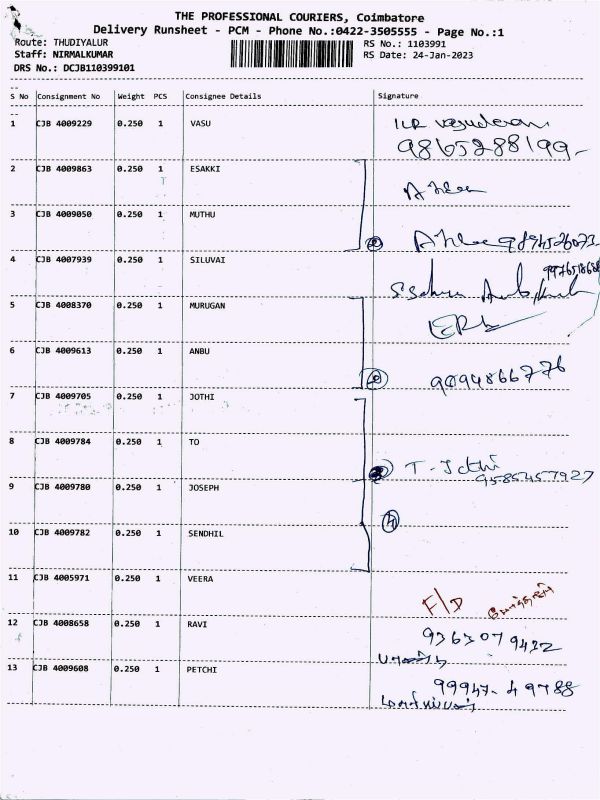 THE PROFESSIONAL COURIERS, Coimbatore
Delivery Runsheet - PCM - Phone No.:0422-3505555 - Page No.:1
Route: THUDIYALUR
RS No.: 1103991
Staff: NIRMALKUMAR
RS Date: 24-Jan-2023
DRS No.: DCJB110399101
S No Consignment No Weight PCS Consignee Details Signature
1 CJB 4009229 0.250 1 VASU
9865288199
2 CJB 4009863 0.250 1 ESAKKI
3 CJB 4009050 0.250 1 MUTHU
4 CJB 4007939 0.250 1 SILUVAI
5 CJB 4008370 0.250 1 MURUGAN
6 CJB 4009613 0.250 1 ANBU
9094866776
7 CJB 4009705 0.250 1 JOTHI
8 CJB 4009784 0.250 1 TO
T-Jothi
9585457927
9 CJB 4009780 0.250 1 JOSEPH
10 CJB 4009782 0.250 1 SENDHIL
11 CJB 4005971 0.250 1 VEERA
F/D
12 CJB 4008658 0.250 1 RAVI
9363079432
13 CJB 4009608 0.250 1 PETCHI
99947-49788